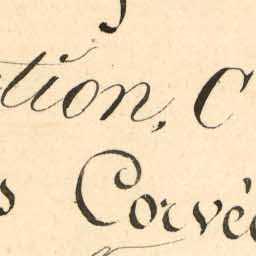 tion, C
s Corvé